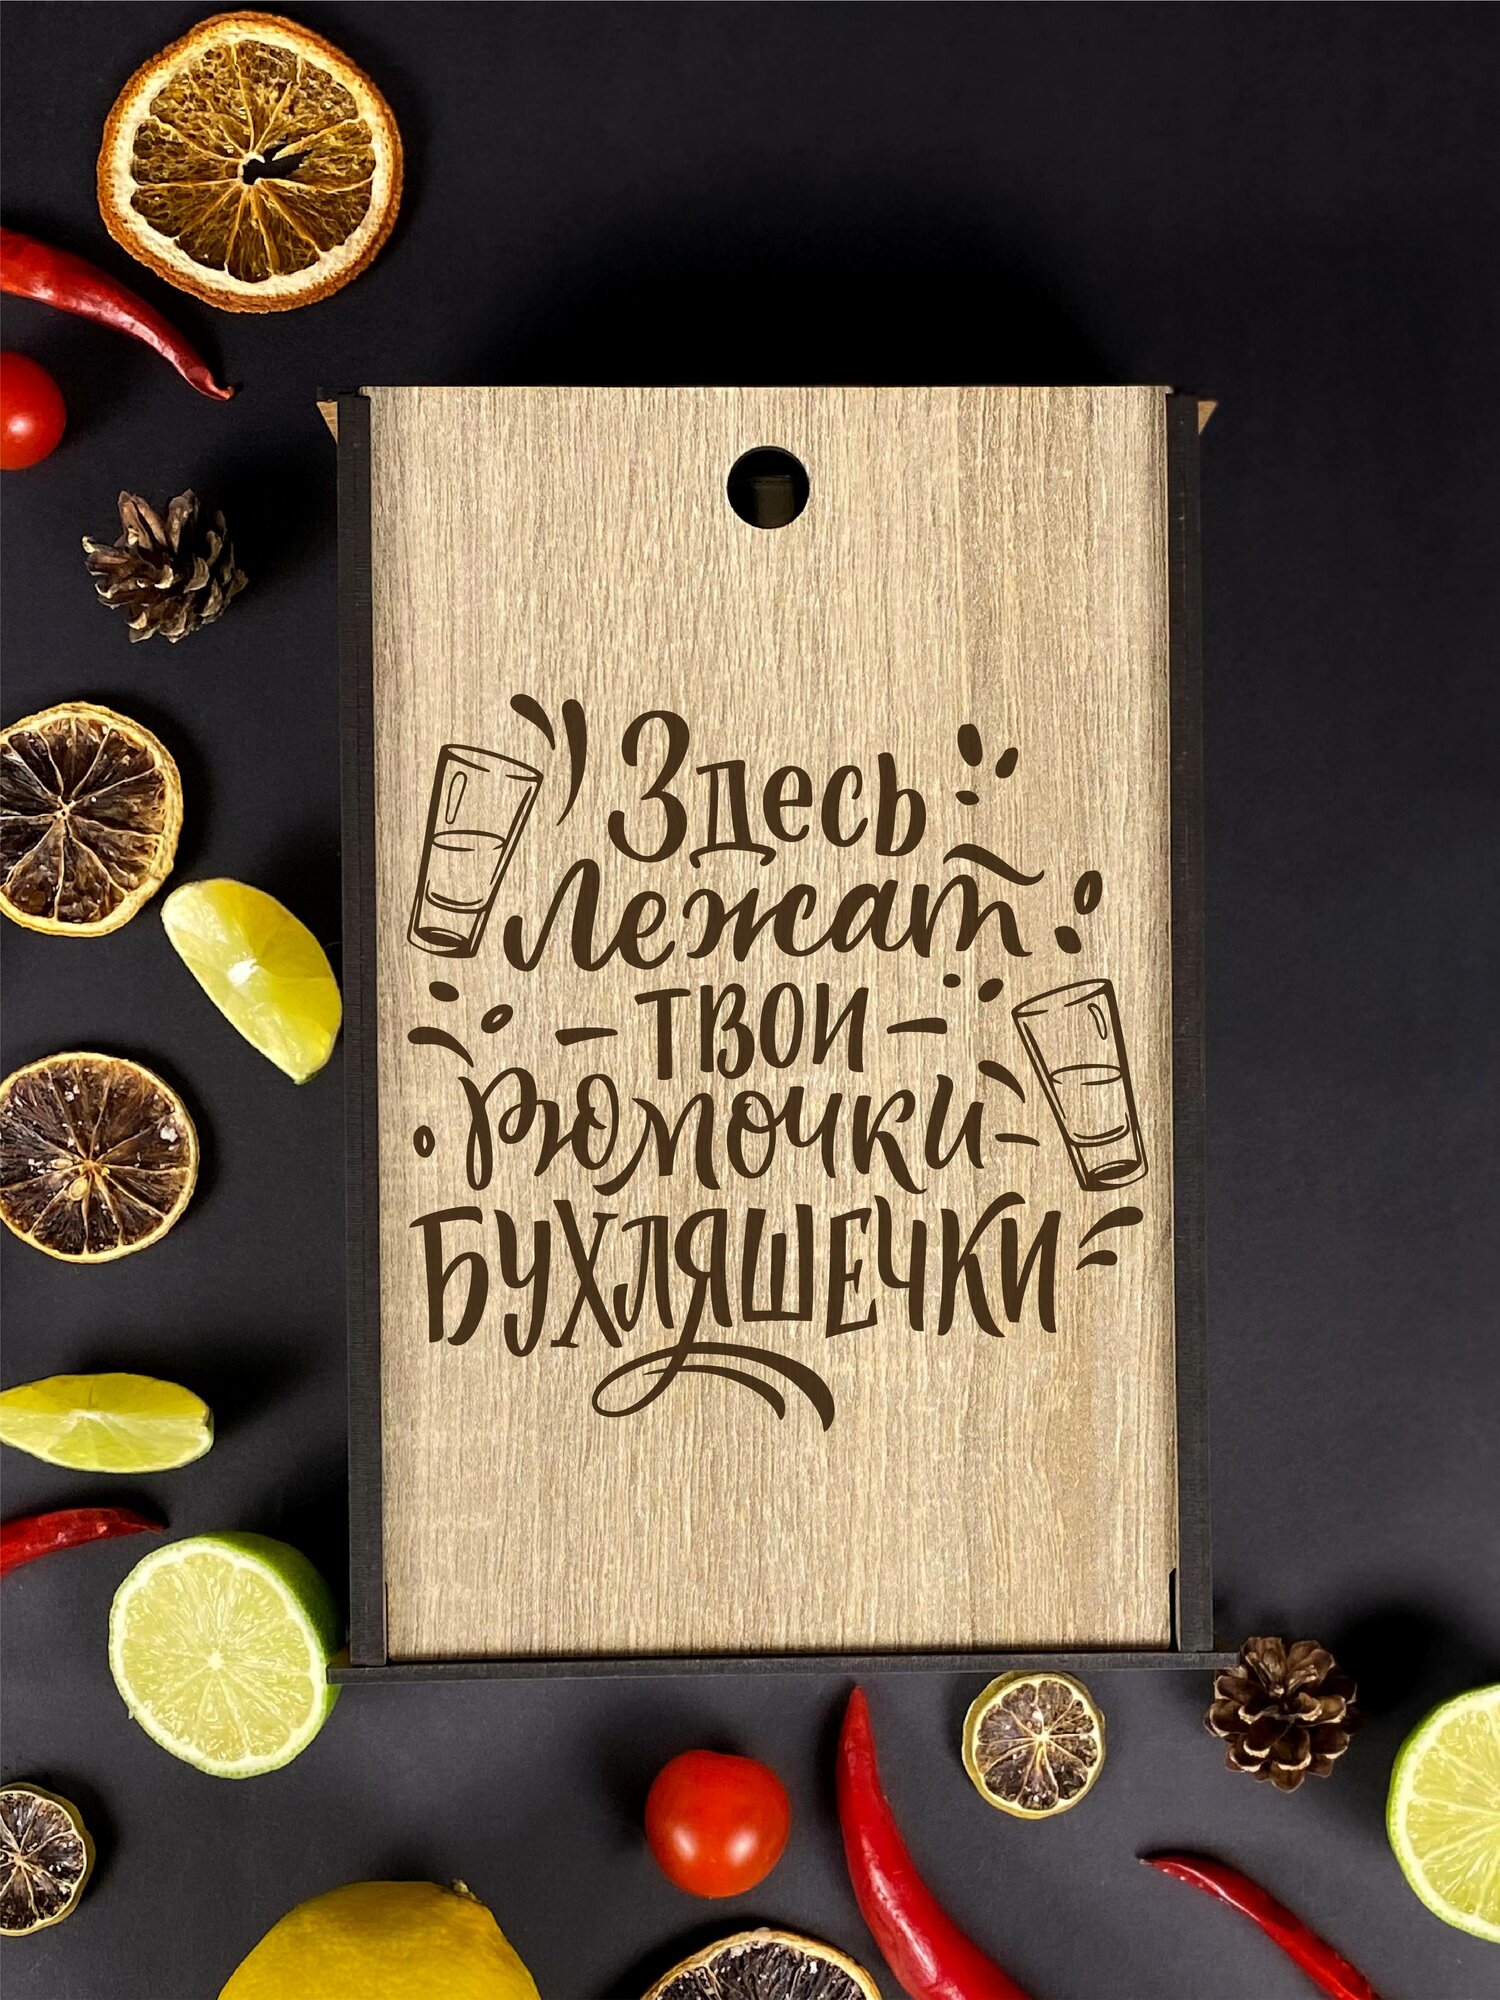 Здесь
лежат
твои
Рюмочки
БУХЛЯШЕЧКИ